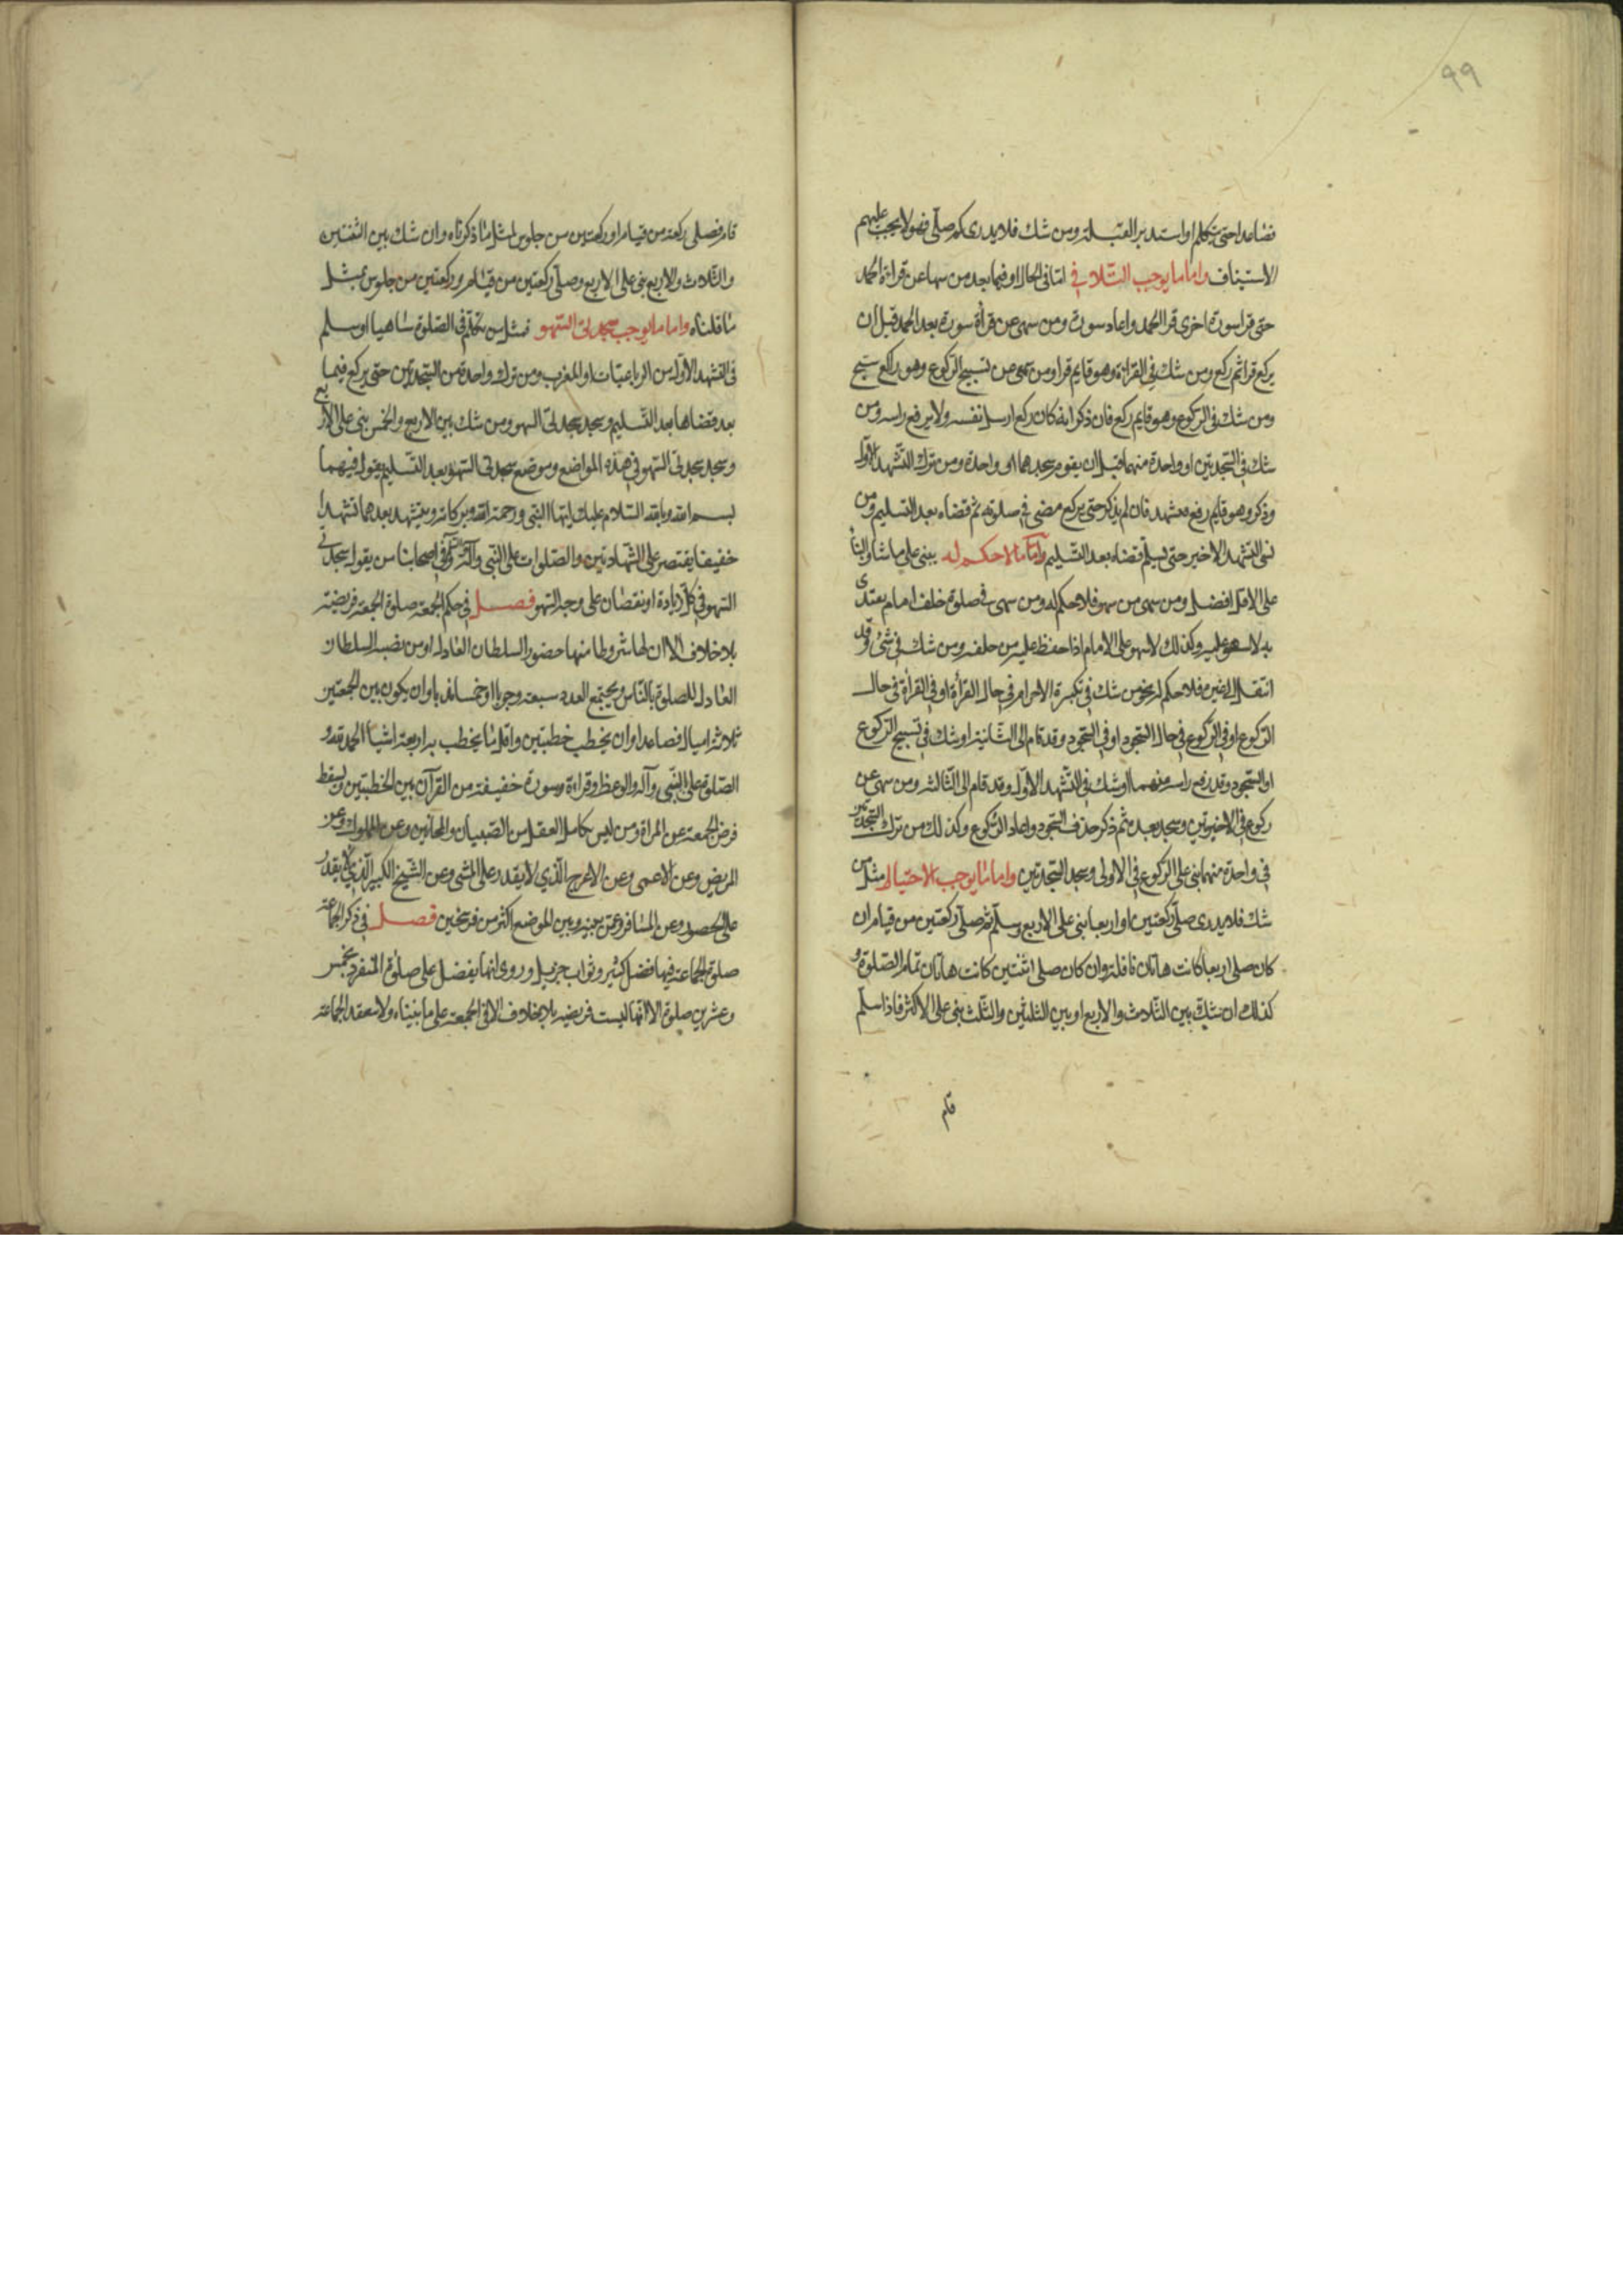 ٩٩
فصاعدا حتى يتكلم او استدبر القبلة ومن شك فلا يدرى كم صلى فهولا يجب عليهم
الاستيناف واما ما يوجب التلافي اما في الحال او فيما بعد من سها عن قراءة الحمد
حتى قرا سورة اخرى قرا الحمد واعاد سورة ومن سهى عن قرأة سورة بعد الحمد قبل ان
يركع قرا ثم ركع ومن شك في القراءة وهو قايم قرا ومن سهى عن تسبيح الركوع وهو راكع سبح
ومن شك في الركوع وهو قايم ركع فان ذكر انه كان ركع ارسل نفسه ولا يرفع راسه ومن
شك في السجدتين او واحدة منهما قبل ان يقوم سجدهما او واحدة ومن ترك التشهد الاول
وذكر وهو قايم رفع فتشهد فان لم يذكر حتى يركع مضى في صلوته ثم قضاه بعد التسليم ومن
نسى التشهد الاخير حتى يسلم قضاه بعد التسليم واما ما لا حكم له يبنى على ما شاء والبنأ
على الاقل افضل ومن سهى من سهو فلا حكم له ومن سهى في صلوة خلف امام يقتدى
به لا سهو عليه وكذلك لا سهو على الامام اذا حفظ عليه من خلفه ومن شك في شئ وقد
انتقل الى غيره فلا حكم له نحو من شك في تكبيرة الاحرام في حال القرأة او في القرأة في حال
الركوع او في الركوع في حال السجود او في السجود وقد قام الى الثانية او شك في تسبيح الركوع
او السجود وقد رفع راسه منهما او شك في التشهد الاول وقد قام الى الثالثة ومن سهى عن
ركوع في الاخيرتين وسجد بعده ثم ذكر حذف السجود واعاد الركوع وكذلك من ترك السجدتين
في واحدة منهما بنى على الركوع في الاولى وسجد السجدتين واما ما يوجب الاحتياط مثل من
شك فلا يدرى صلى ركعتين او اربعا بنى على الاربع وسلم ثم صلى ركعتين من قيام ان
كان صلى اربعا كانت هاتان نافلة وان كان صلى اثنتين كانت هاتان تمام الصلوة و
كذلك ان شك بين الثلاث والاربع او بين الثنتين والثلث بنى على الاكثر فاذا سلم
قام
قام فصلى ركعة من قيام او ركعتين من جلوس لمثل ما ذكرناه وان شك بين الثنتين
والثلاث والاربع بنى على الاربع وصلى ركعتين من قيام وركعتين من جلوس بمثل
ما قلناه واما ما يوجب سجدتى السهو فمثل من تكلم في الصلوة ساهيا او سلم
في التشهد الاول من الرباعيات او المغرب ومن ترك واحدة من السجدتين حتى يركع فيما
بعد قضاها بعد التسليم وسجد سجدتى السهو ومن شك بين الاربع والخمس بنى على الاربع
وسجد سجدتى السهو في هذه المواضع وموضع سجدتى السهو بعد التسليم يقول فيهما
بسم الله وبالله السلام عليك ايها النبى ورحمة الله وبركاته ويتشهد بعدهما تشهدا
خفيفا يقتصر على الشهادتين والصلوات على النبى وآله وفي اصحابنا من يقول سجدتى
السهو في كل زيادة او نقصان على وجه السهو فصل في حكم الجمعة صلوة الجمعة فريضة
بلا خلاف الا ان لها شروطا منها حضور السلطان العادل او من نصبه السلطان
العادل للصلوة بالناس ويجتمع العدد سبعة وجوبا او خمسة ندبا وان يكون بين الجمعتين
ثلاثة اميال فصاعدا وان يخطب خطبتين واقل ما يخطب به اربعة اشيأ الحمد لله و
الصلوة على النبى وآله والوعظ وقراءة سورة خفيفة من القرآن بين الخطبتين ويسقط
فرض الجمعة عن المراة ومن ليس بكامل العقل من الصبيان والمجانين وعن المملوك وعن
المريض وعن الاعمى وعن الاعرج الذى لا يقدر على المشى وعن الشيخ الكبير الذى لا يقدر
على الحضور وعن المسافر وعمن بينه وبين الموضع اكثر من فرسخين فصل في ذكر الجماعة
صلوة الجماعة فيها فضل كثير وثواب جزيل وروى انها يفضل على صلوة المنفرد بخمس
وعشرين صلوة الا انها ليست فريضة بلا خلاف الا في الجمعة على ما بيناه ولا ينعقد الجماعة